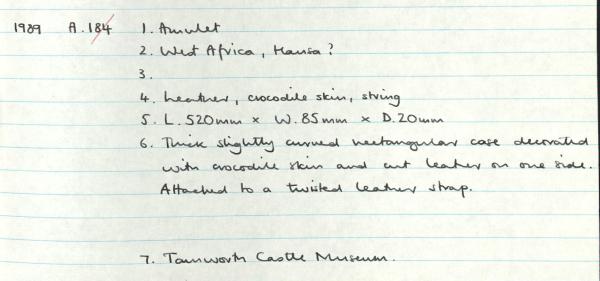 1989 A.184 1. Amulet
2. West Africa, Hausa?
3.
4. Leather, crocodile skin, string
5. L. 520mm × W. 85mm × D. 20mm
6. Thick slightly curved rectangular case decorated
with crocodile skin and cut leather on one side.
Attached to a twisted leather strap.
7. Tamworth Castle Museum.